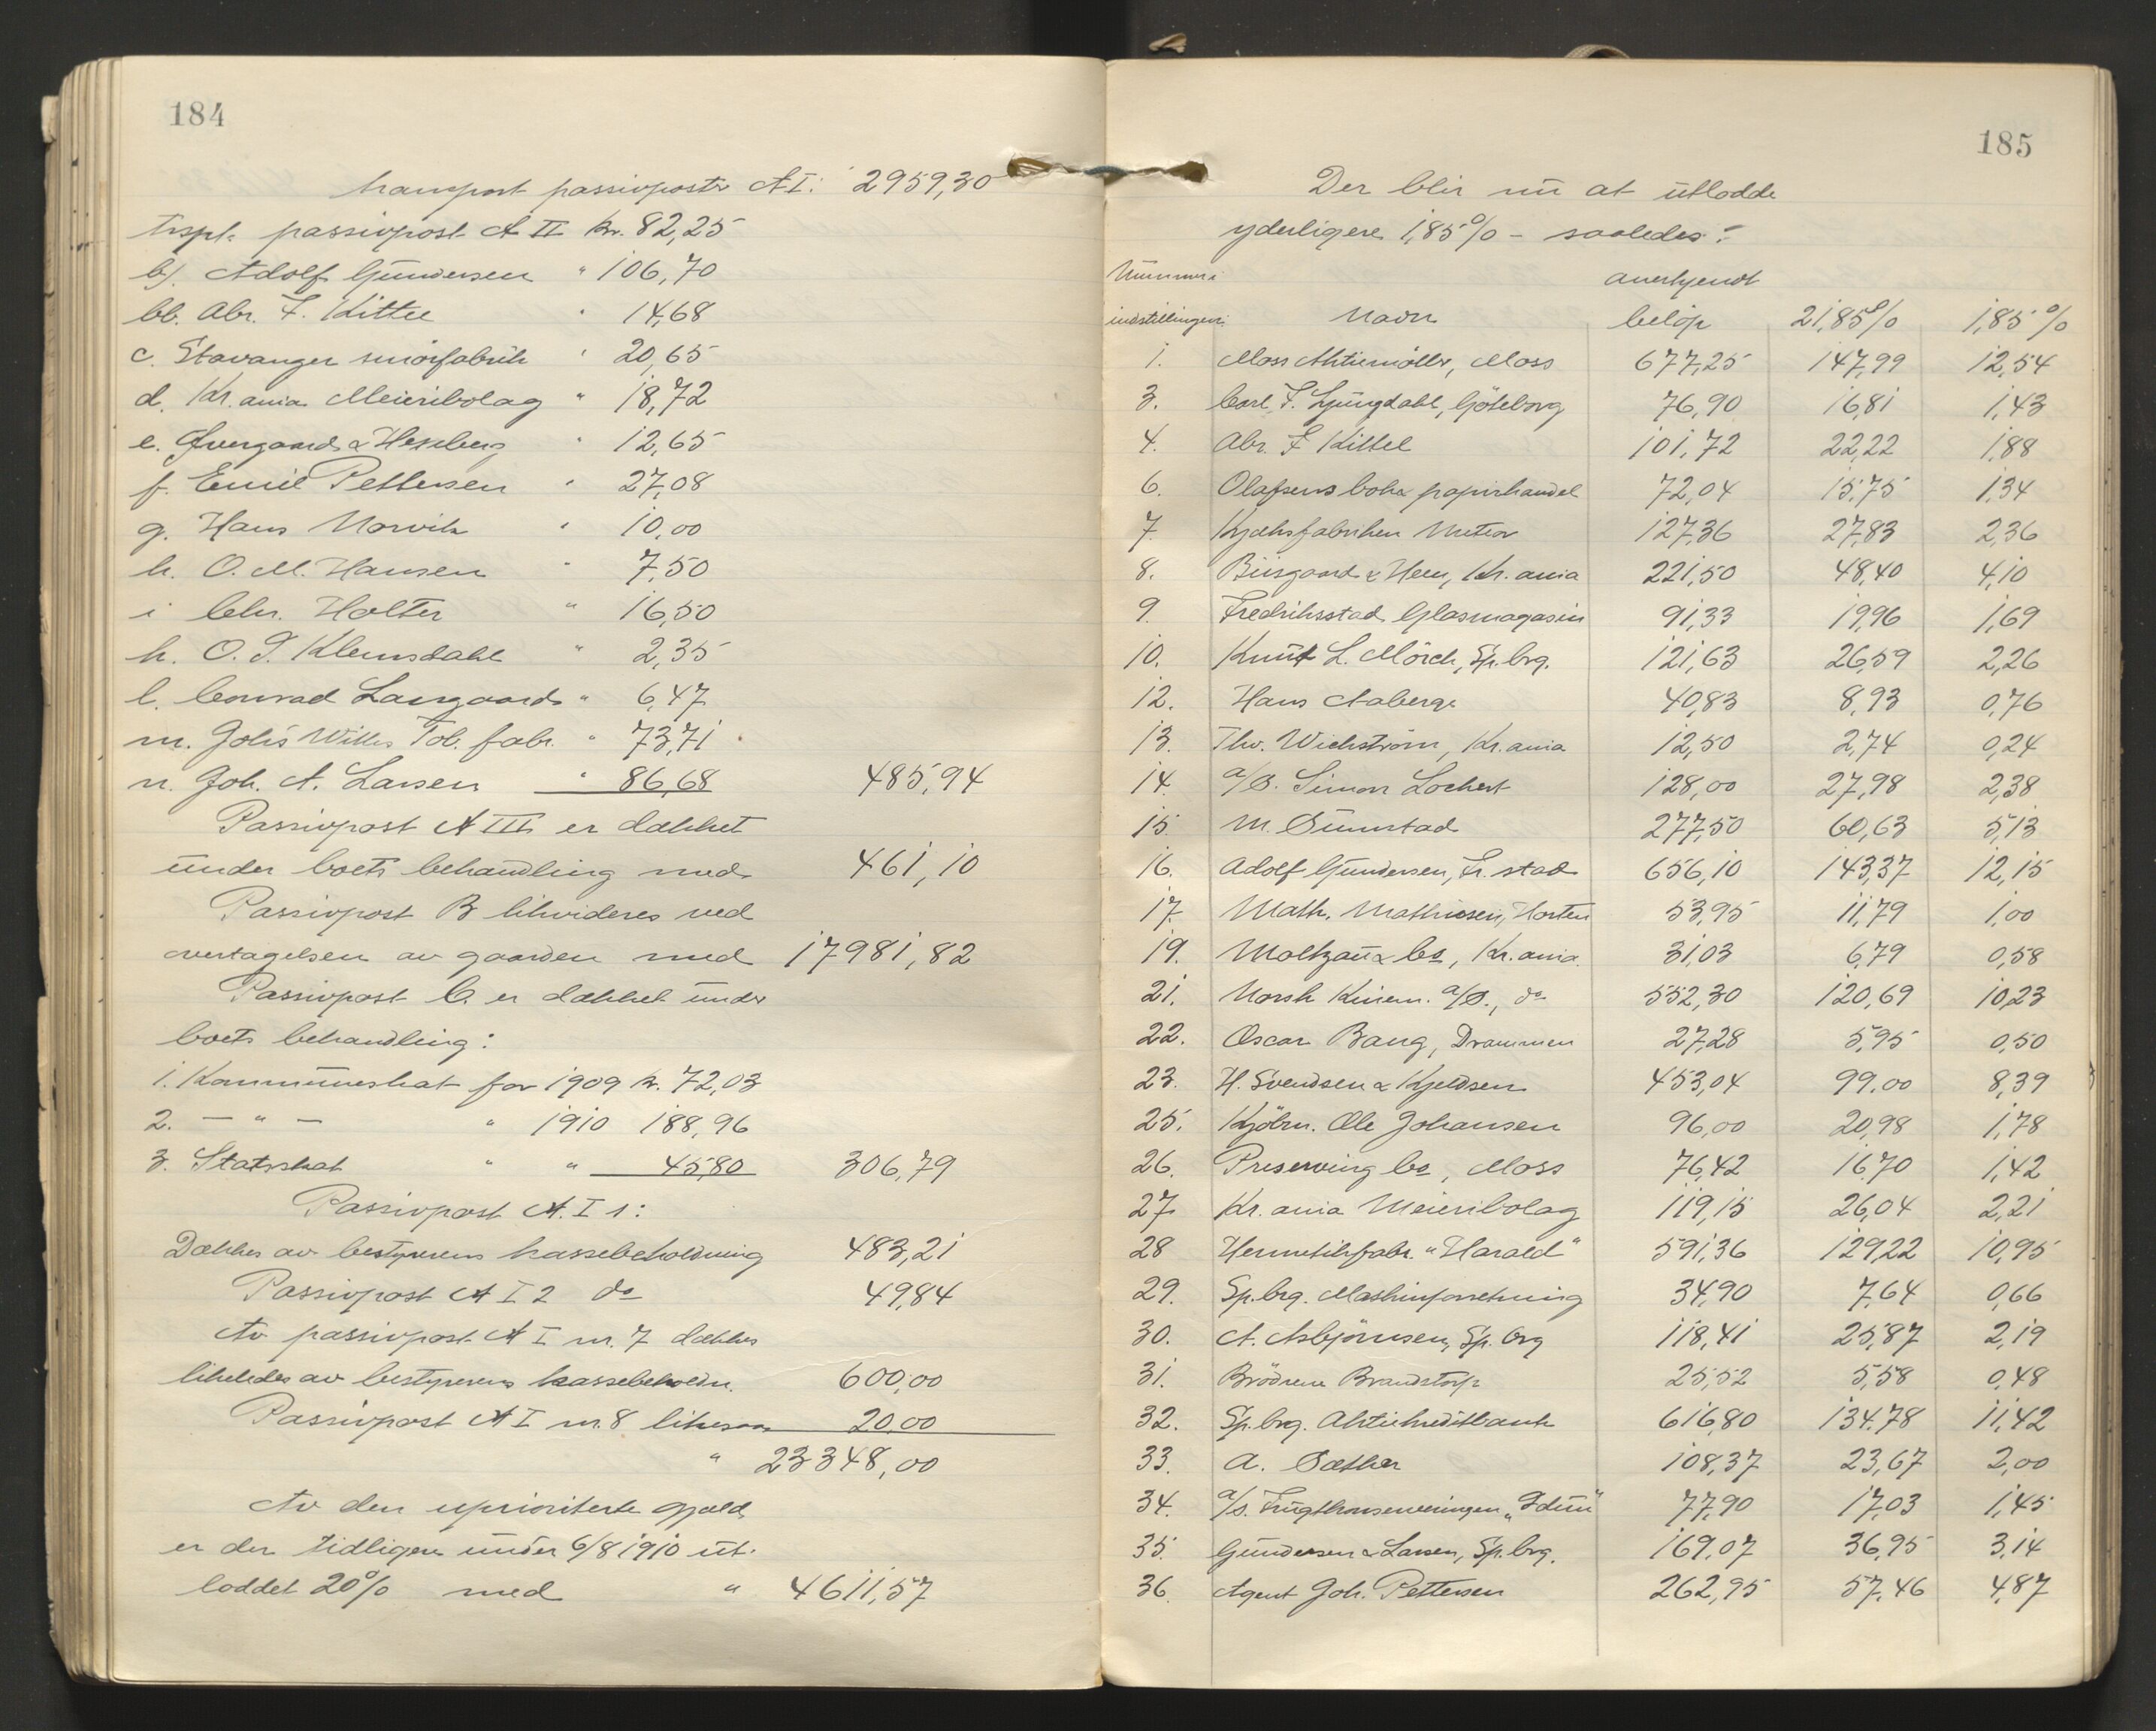 184
transport passivposter A I: 2959,30
trspt. passivpost A II kr. 82,25
b). Adolf Gundersen " 106,70
bb. Abr. F. Kittel " 14,68
c. Stavanger smörfabrik " 20,65
d. Kr.ania Meieribolag " 18,72
e. Övergaard & Hesselberg " 12,65
f. Emil Pettersen " 27,08
g. Hans " 10,00
h. O. M. Hansen " 7,50
i Chr. Holter " 16,50
k. O. J. Klemsdahl " 2,35
l. Conrad Langaard " 6,47
m. Joh's Wilhs Tob. fabr. " 73,71
n. Joh. A. Larsen " 86,68 485,94
Passivpost A III er dækket
under boets behandling med 461,10
Passivpost B likvideres ved
overtagelsen av gaarden med 17981,82
Passivpost C. er dækket under
boets behandling:
1. Kommuneskat for 1909 kr. 72,03
2. — " — " 1910 188,96
3. Statsskat " " 45,80 306,79
Passivpost A. I 1:
Dækkes av bestyrerens kassebeholdning 483,21
Passivpost A I 2 do 49,84
Av passivpost A I nr. 7 dækkes
likeledes av bestyrerens kassebeholdn. 600,00
Passivpost A I nr. 8 likesaa 20,00
" 23348,00
Av den uprioriterte gjæld
er der tidligere under 6/8 1910 ut-
loddet 20% med " 4611,57
185
Der blir nu at utlodde
yderligere 1,85% – saaledes:
Nummer i anerkjendt
indstillingen. Navn beløp 21,85% 1,85%
1. Moss Aktiemøller, Moss 677,25 147,99 12,54
3. Carl F. Ljungdahl, Göteborg 76,90 16,81 1,43
4. Abr. F Kittel 101,72 22,22 1,88
6. Olafsens bok & papirhandel 72,04 15,75 1,34
7 Kjæksfabriken Meteor 127,36 27,83 2,36
8. Biisgaard & Hem, Kr.ania 221,50 48,40 4,10
9. Fredriksstad Glasmagasin 91,33 19,96 1,69
10. Knut L. Mörch, Sp.brg. 121,63 26,59 2,26
12. Hans Aaberge 40,83 8,93 0,76
13. Thv. Wichström, Kr.ania 12,50 2,74 0,24
14. a/s. Simon Lochert 128,00 27,98 2,38
15. M. Sunnstad 277,50 60,63 5,13
16. Adolf Gundersen, Fr.stad 656,10 143,37 12,15
17. Math. Mathiesen, Horten 53,95 11,79 1,00
19. Moltzau & Co, Kr.ania 31,03 6,79 0,58
21. Norsk Kinem. a/s., do 552,30 120,69 10,23
22. Oscar Bang, Drammen 27,28 5,95 0,50
23. H. Svendsen & Kjeldsen 453,04 99,00 8,39
25. Kjöbm. Ole Johansen 96,00 20,98 1,78
26. Preserving Co, Moss 76,42 16,70 1,42
27. Kr.ania Meieribolag 119,15 26,04 2,21
28 Hermetikfabr. "Harald" 591,36 129,22 10,95
29. Sp.brg. Maskinforretning 34,90 7,64 0,66
30. A. Asbjörnsen, Sp.brg 118,41 25,87 2,19
31. Brödrene Brandstorp 25,52 5,58 0,48
32. Sp.brg. Aktiekreditbank 616,80 134,78 11,42
33. A. Sæther 108,37 23,67 2,00
34. a/s. Frugtkonserveringen "Idun" 77,90 17,03 1,45
35. Gundersen & Larsen, Sp.brg. 169,07 36,95 3,14
36. Agent Joh. Pettersen 262,95 57,46 4,87